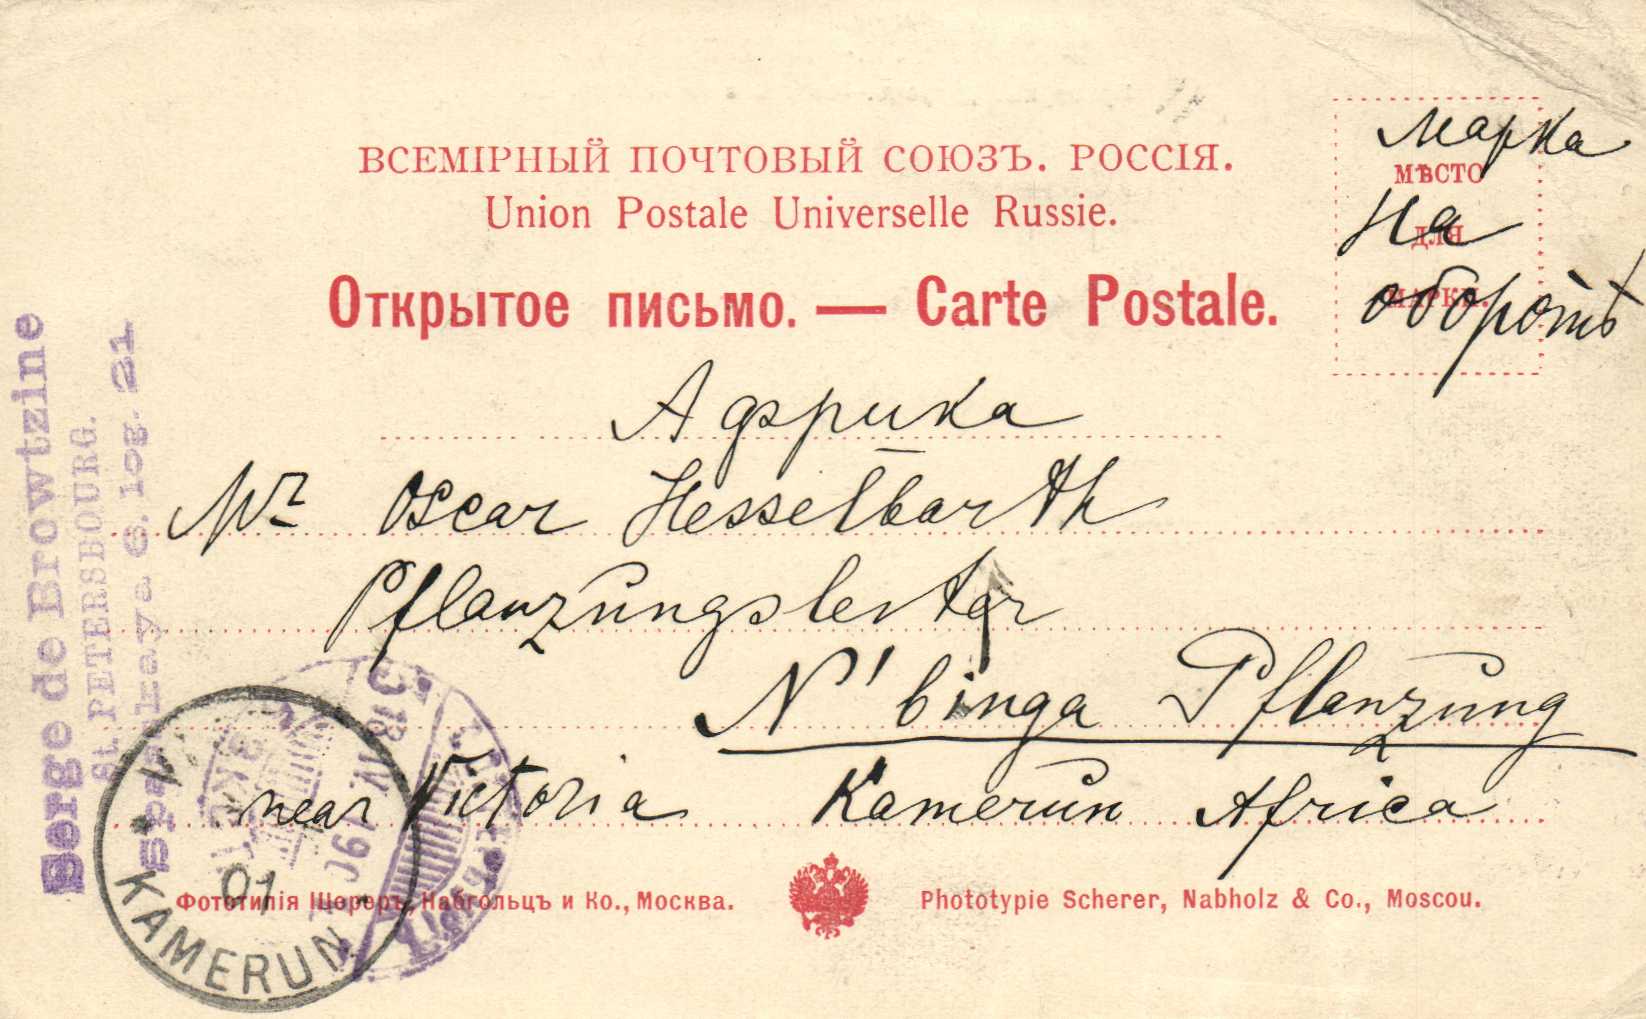 ВСЕМІРНЫЙ ПОЧТОВЫЙ СОЮЗЪ. РОССІЯ.
Union Postale Universelle Russie.
Открытое письмо. — Carte Postale.
МѢСТО
ДЛЯ
МАРКИ.
Марка
на
оборотѣ
Африка
Mr Oscar Hesselbarth
Pflanzungsleiter
N'binga Pflanzung
near Victoria Kamerun Africa
Serge de Browtzine
St. PETERSBOURG.
6. log. 21
3 18 IV. 190
01
KAMERUN
Фототипія Шереръ, Набгольцъ и Ко., Москва.
Phototypie Scherer, Nabholz & Co., Moscou.